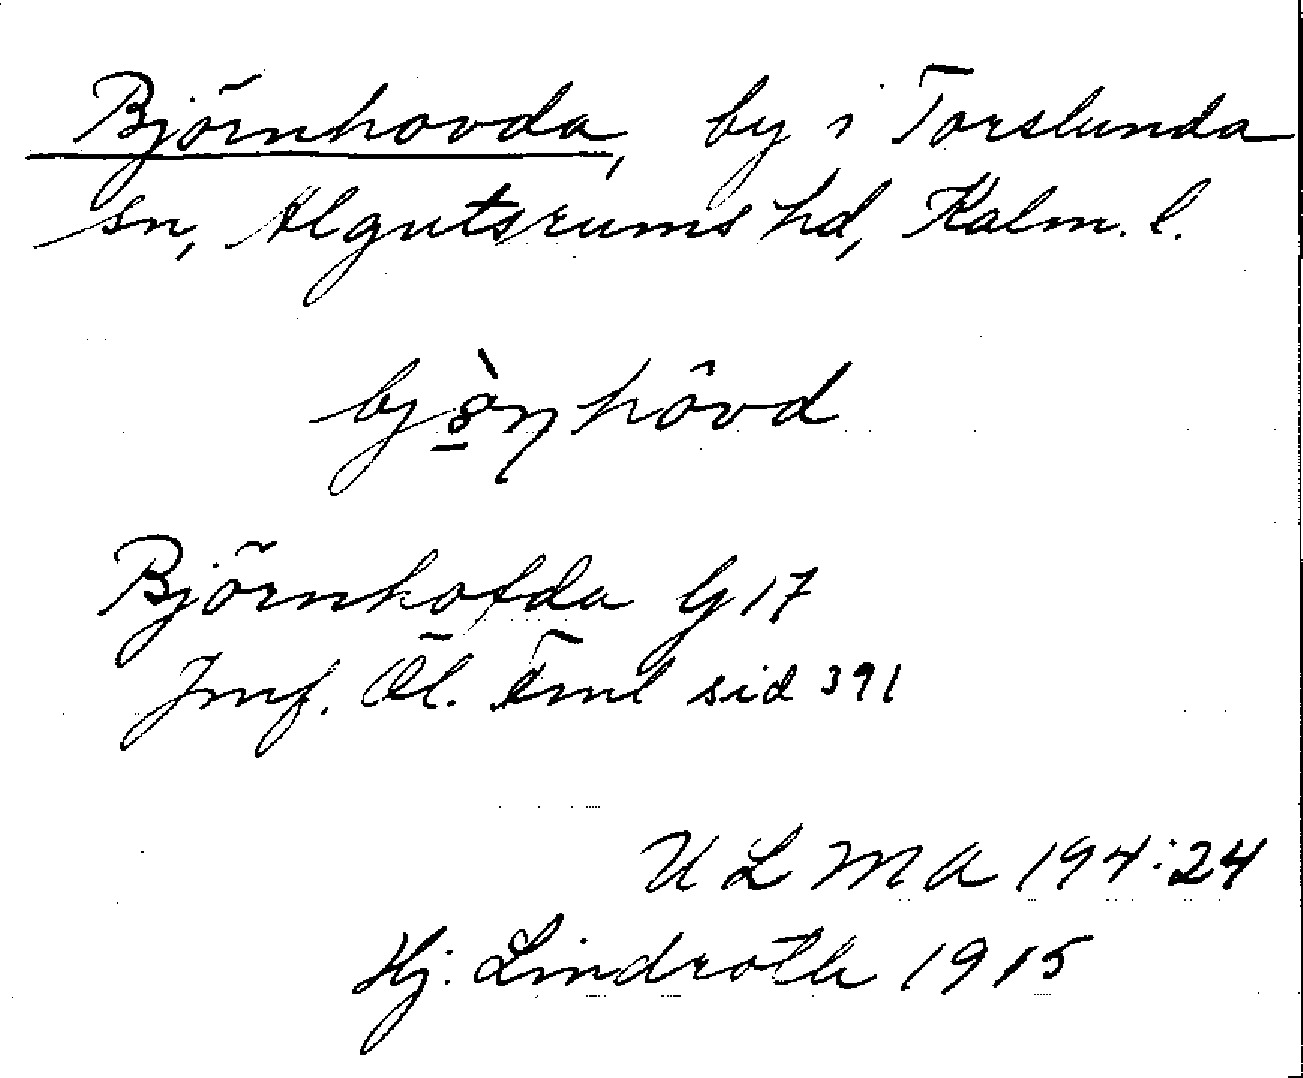 Björnhovda, by i Torslunda
sn, Algutsrums hd, Kalm. l.
bjö̀ŋhôvd
Björnhofda G 17
Jmf. Öl. Fml sid 391
ULMA 194:24
Hj. Lindroth 1915